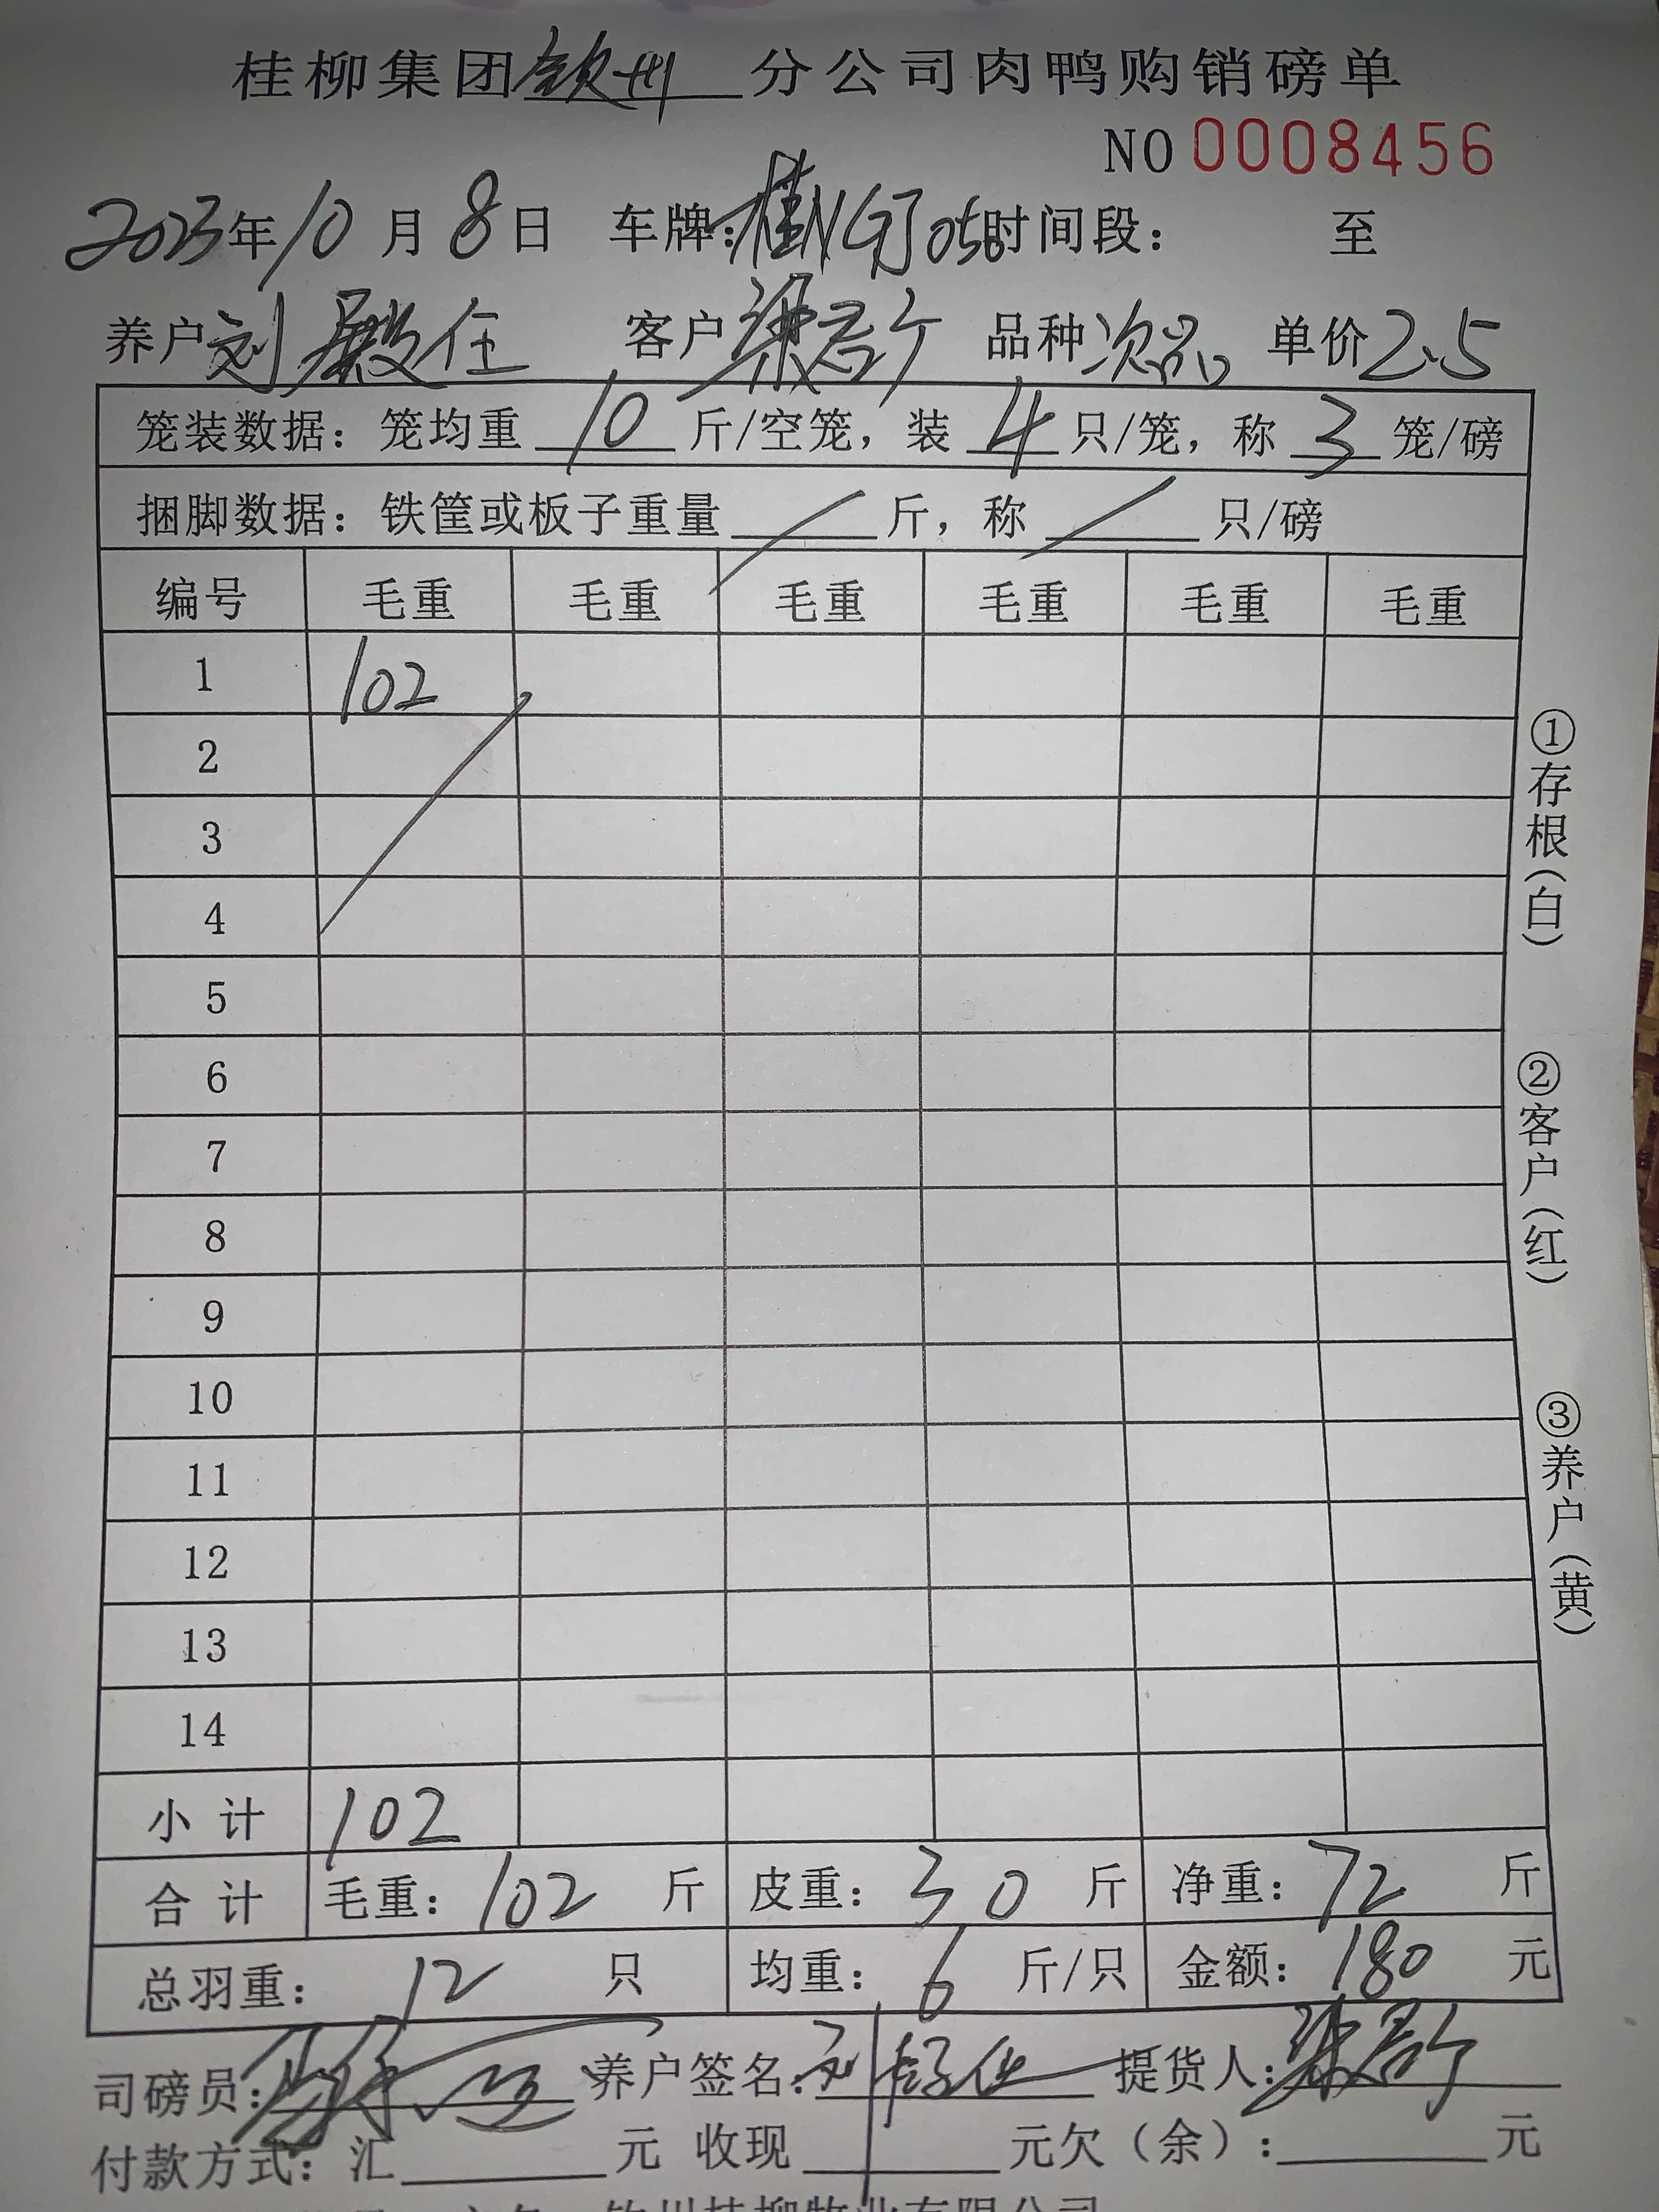 桂柳集团钦州分公司肉鸭购销磅单
NO 0008456
2023年10月8日 车牌: 时间段: 至
养户 刘殿任 客户 梁 品种 次品 单价 2.5
笼装数据: 笼均重 10 斤/空笼, 装 4 只/笼, 称 3 笼/磅
捆脚数据: 铁筐或板子重量 / 斤, 称 / 只/磅
编号 毛重 毛重 毛重 毛重 毛重 毛重
1 102
2
3
4
5
6
7
8
9
10
11
12
13
14
小计 102
合计 毛重: 102 斤 皮重: 30 斤 净重: 72 斤
总羽重: 12 只 均重: 6 斤/只 金额: 180 元
司磅员: 养户签名: 刘 提货人: 梁
付款方式: 汇 元 收现 元欠(余): 元
①存根(白)
②客户(红)
③养户(黄)